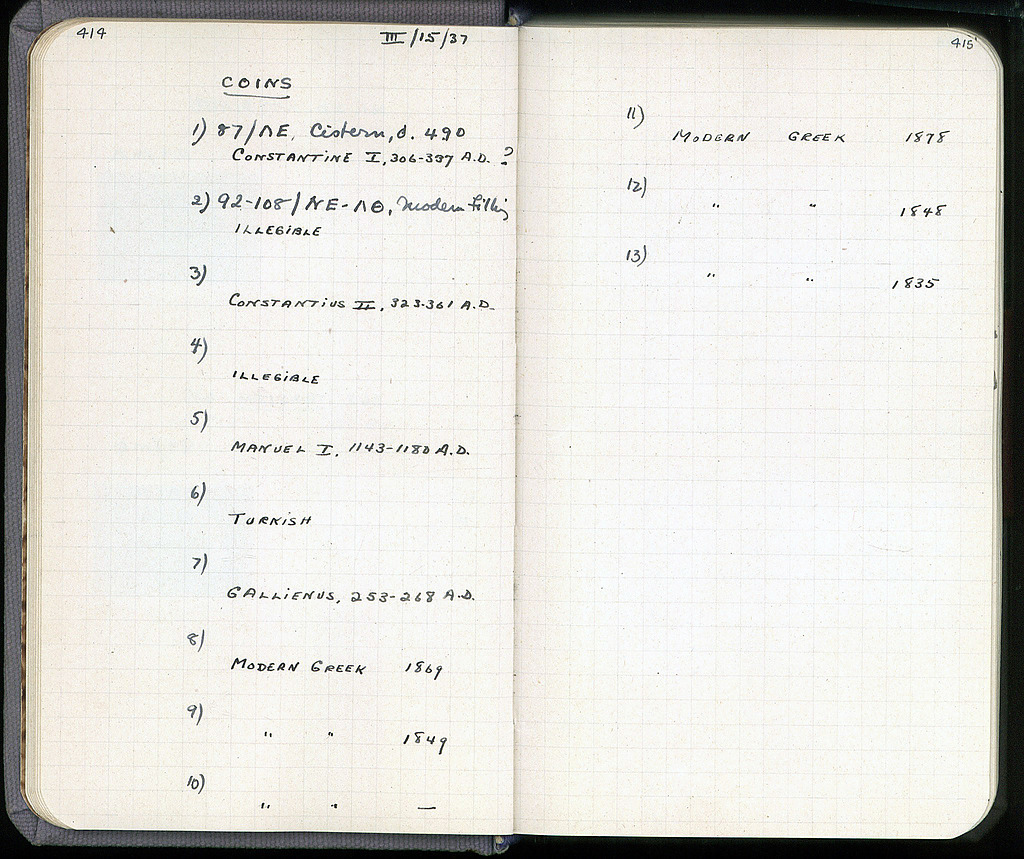 414
III/15/37
COINS
1) 87/ΛΕ, Cistern, d. 490
CONSTANTINE I, 306-337 A.D. ?
2) 92-108/ΝΕ-ΛΘ, Modern Filling
ILLEGIBLE
3)
CONSTANTIUS II, 323-361 A.D.
4)
ILLEGIBLE
5)
MANUEL I, 1143-1180 A.D.
6)
TURKISH
7)
GALLIENUS, 253-268 A.D.
8)
MODERN GREEK 1869
9)
" " 1849
10)
" " —
415
11)
MODERN GREEK 1878
12)
" " 1848
13)
" " 1835